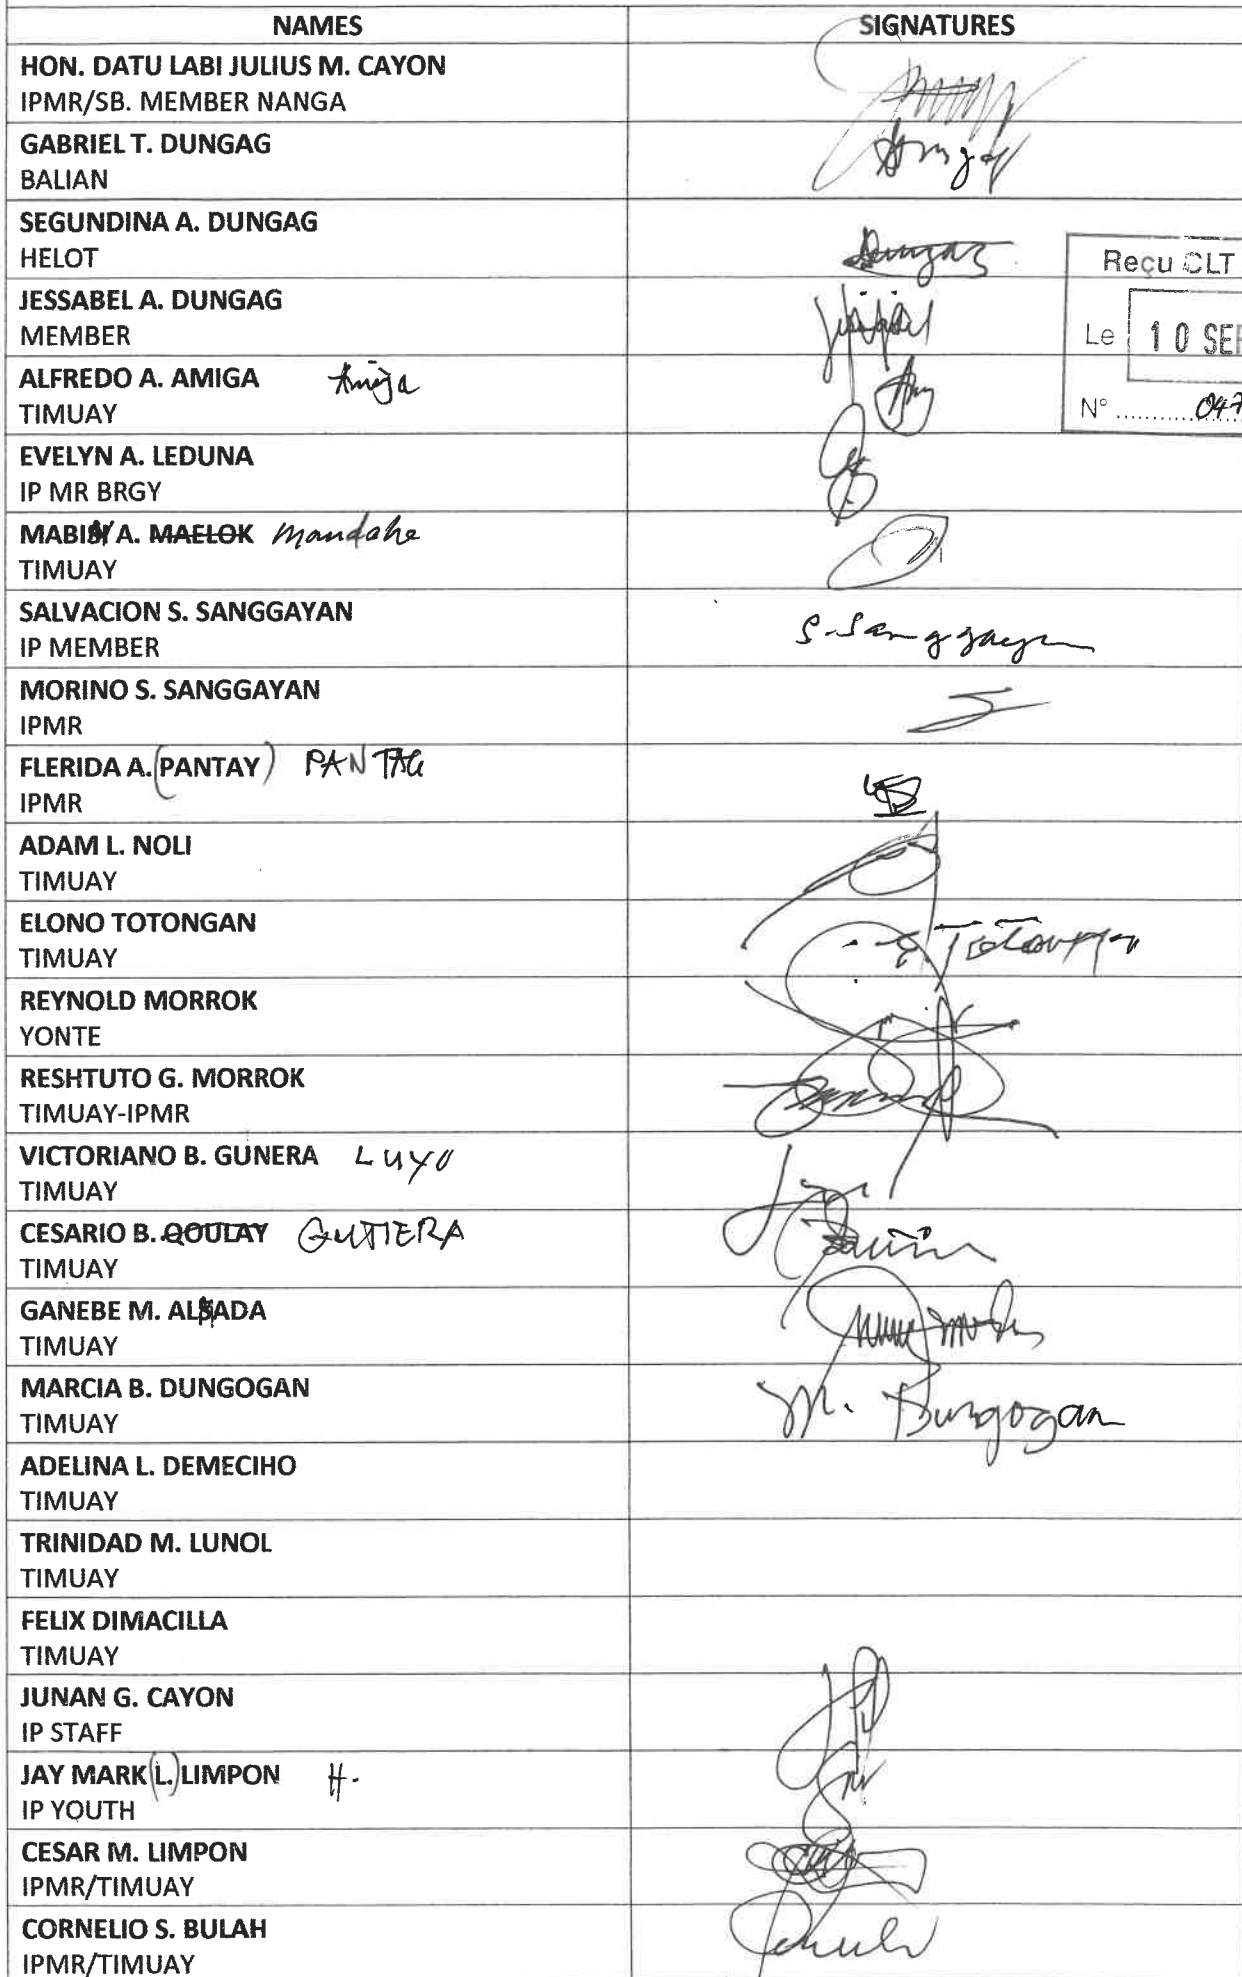 NAMES SIGNATURES
HON. DATU LABI JULIUS M. CAYON
IPMR/SB. MEMBER NANGA
GABRIEL T. DUNGAG
BALIAN
SEGUNDINA A. DUNGAG
HELOT
Reçu CLT
JESSABEL A. DUNGAG
MEMBER
Le 10 SE
ALFREDO A. AMIGA Amiga
TIMUAY
N° 047
EVELYN A. LEDUNA
IP MR BRGY
MABINY A. MAELOK Mandahe
TIMUAY
SALVACION S. SANGGAYAN
IP MEMBER
S. Sanggayan
MORINO S. SANGGAYAN
IPMR
FLERIDA A. (PANTAY) PANTAG
IPMR
ADAM L. NOLI
TIMUAY
ELONO TOTONGAN
TIMUAY
REYNOLD MORROK
YONTE
RESHTUTO G. MORROK
TIMUAY-IPMR
VICTORIANO B. GUNERA LUYO
TIMUAY
CESARIO B. QOULAY GUTIERA
TIMUAY
GANEBE M. ALSADA
TIMUAY
MARCIA B. DUNGOGAN
TIMUAY
M. Dungogan
ADELINA L. DEMECIHO
TIMUAY
TRINIDAD M. LUNOL
TIMUAY
FELIX DIMACILLA
TIMUAY
JUNAN G. CAYON
IP STAFF
JAY MARK (L.) LIMPON H.
IP YOUTH
CESAR M. LIMPON
IPMR/TIMUAY
CORNELIO S. BULAH
IPMR/TIMUAY